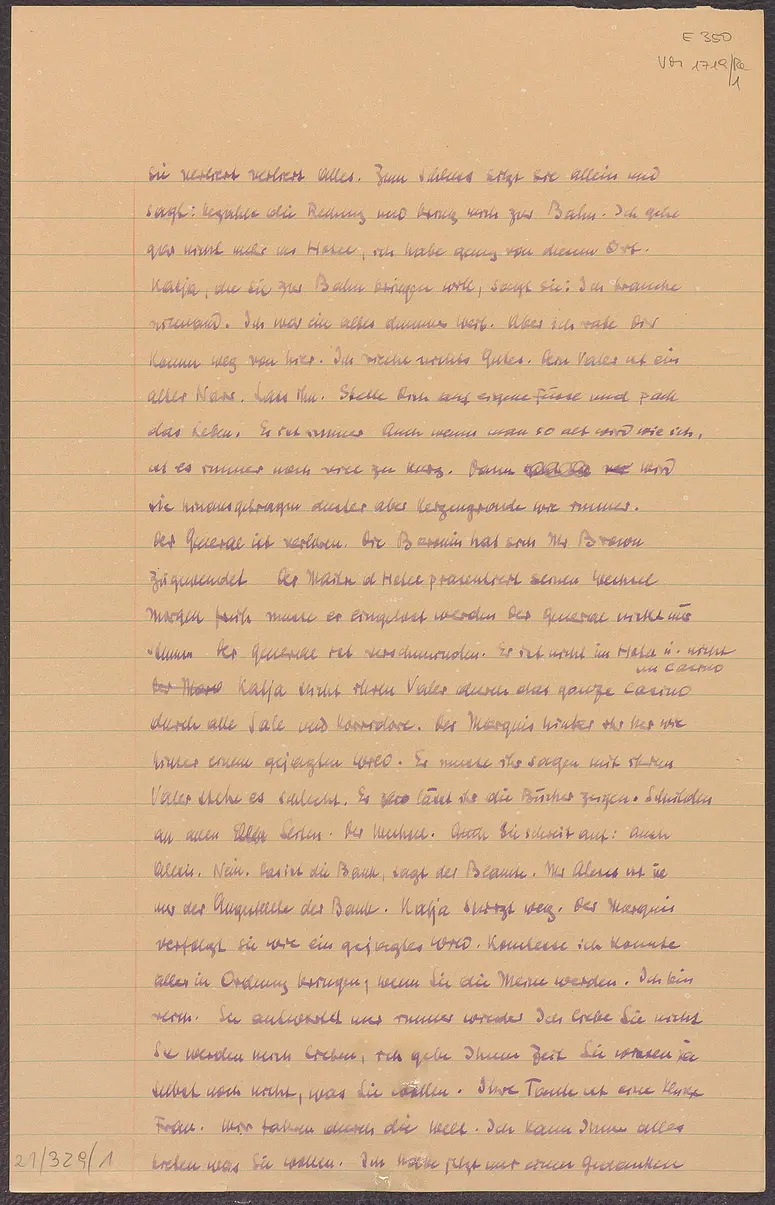 E 350
Von 1719/Re
1
sie verliert verliert alles. Zum Schluss sitzt sie allein und
sagt: bezahle die Rechnung und bring mich zur Bahn. Ich gehe
gar nicht mehr ins Hotel, ich habe genug von diesem Ort.
Katja, die sie zur Bahn bringen will, sagt sie: Ich brauche
niemand. Ich war ein altes dummes Weib. Aber ich rate Dir
komm weg von hier. Ich rieche nichts Gutes. Dein Vater ist ein
alter Narr. Lass ihn. Stelle Dich auf eigene Füsse und pack
das Leben. Es ist immer Auch wenn man so alt wird wie ich,
ist es immer noch viel zu kurz. Dann wird
sie hinausgetragen dunkel aber kerzengrade wie immer.
Der General ist verloren. Die Baronin hat sich Mr Brown
zugewendet Der Maitre d Hotel präsentiert seinen Wechsel
Morgen früh müsse er eingelöst werden Der General nickt nur
stumm Der General ist verschwunden. Er ist nicht im Hotel u. nicht
im Casino
Katja sucht ihren Vater durch das ganze Casino
durch alle Säle und Korridore. Der Marquis hinter ihr her wie
hinter einem gejagten Wild. Er müsse ihr sagen mit ihrem
Vater stehe es schlecht. Er lässt ihr die Bücher zeigen. Schulden
an allen Seiten. Der Wechsel. Auch Sie schreit auf: auch
Alexis. Nein. Das ist die Bank, sagt der Beamte. Mr Alexis ist ja
nur der Angestellte der Bank. Katja stürzt weg. Der Marquis
verfolgt sie wie ein gejagtes Wild. Komtesse ich könnte
alles in Ordnung bringen, wenn Sie die Meine werden. Ich bin
reich. Sie antwortet nur immer wieder Ich liebe Sie nicht
Sie werden mich lieben, ich gebe Ihnen Zeit Sie wissen ja
selbst noch nicht, was Sie wollen. Ihre Tante ist eine kluge
Frau. Wir fahren durch die Welt. Ich kann Ihnen alles
bieten was Sie wollen. Ich habe jetzt nur einen Gedanken
21/329/1